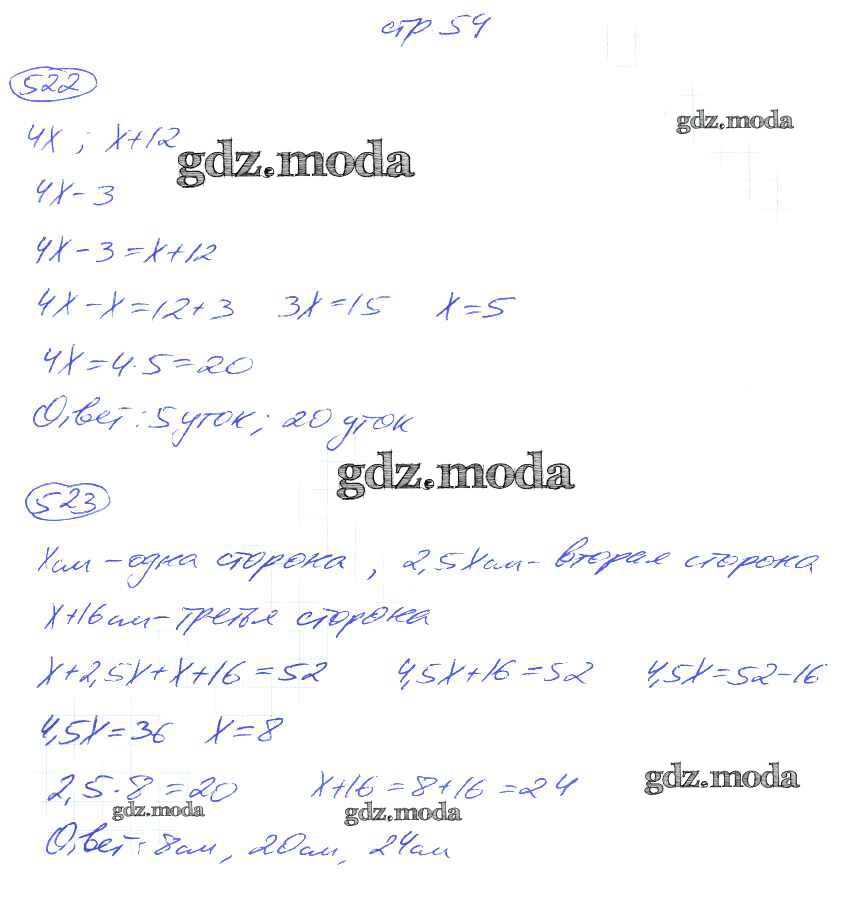 стр 54
522
gdz.moda
4x ; x+12
gdz.moda
4x-3
4x-3=x+12
4x-x=12+3 3x=15 x=5
4x=4·5=20
Ответ: 5 уток; 20 уток
gdz.moda
523
x см - одна сторона, 2,5x см - вторая сторона
x+16 см - третья сторона
x+2,5x+x+16=52 4,5x+16=52 4,5x=52-16
4,5x=36 x=8
2,5·8=20 x+16=8+16=24
gdz.moda
gdz.moda gdz.moda
Ответ: 8 см, 20 см, 24 см